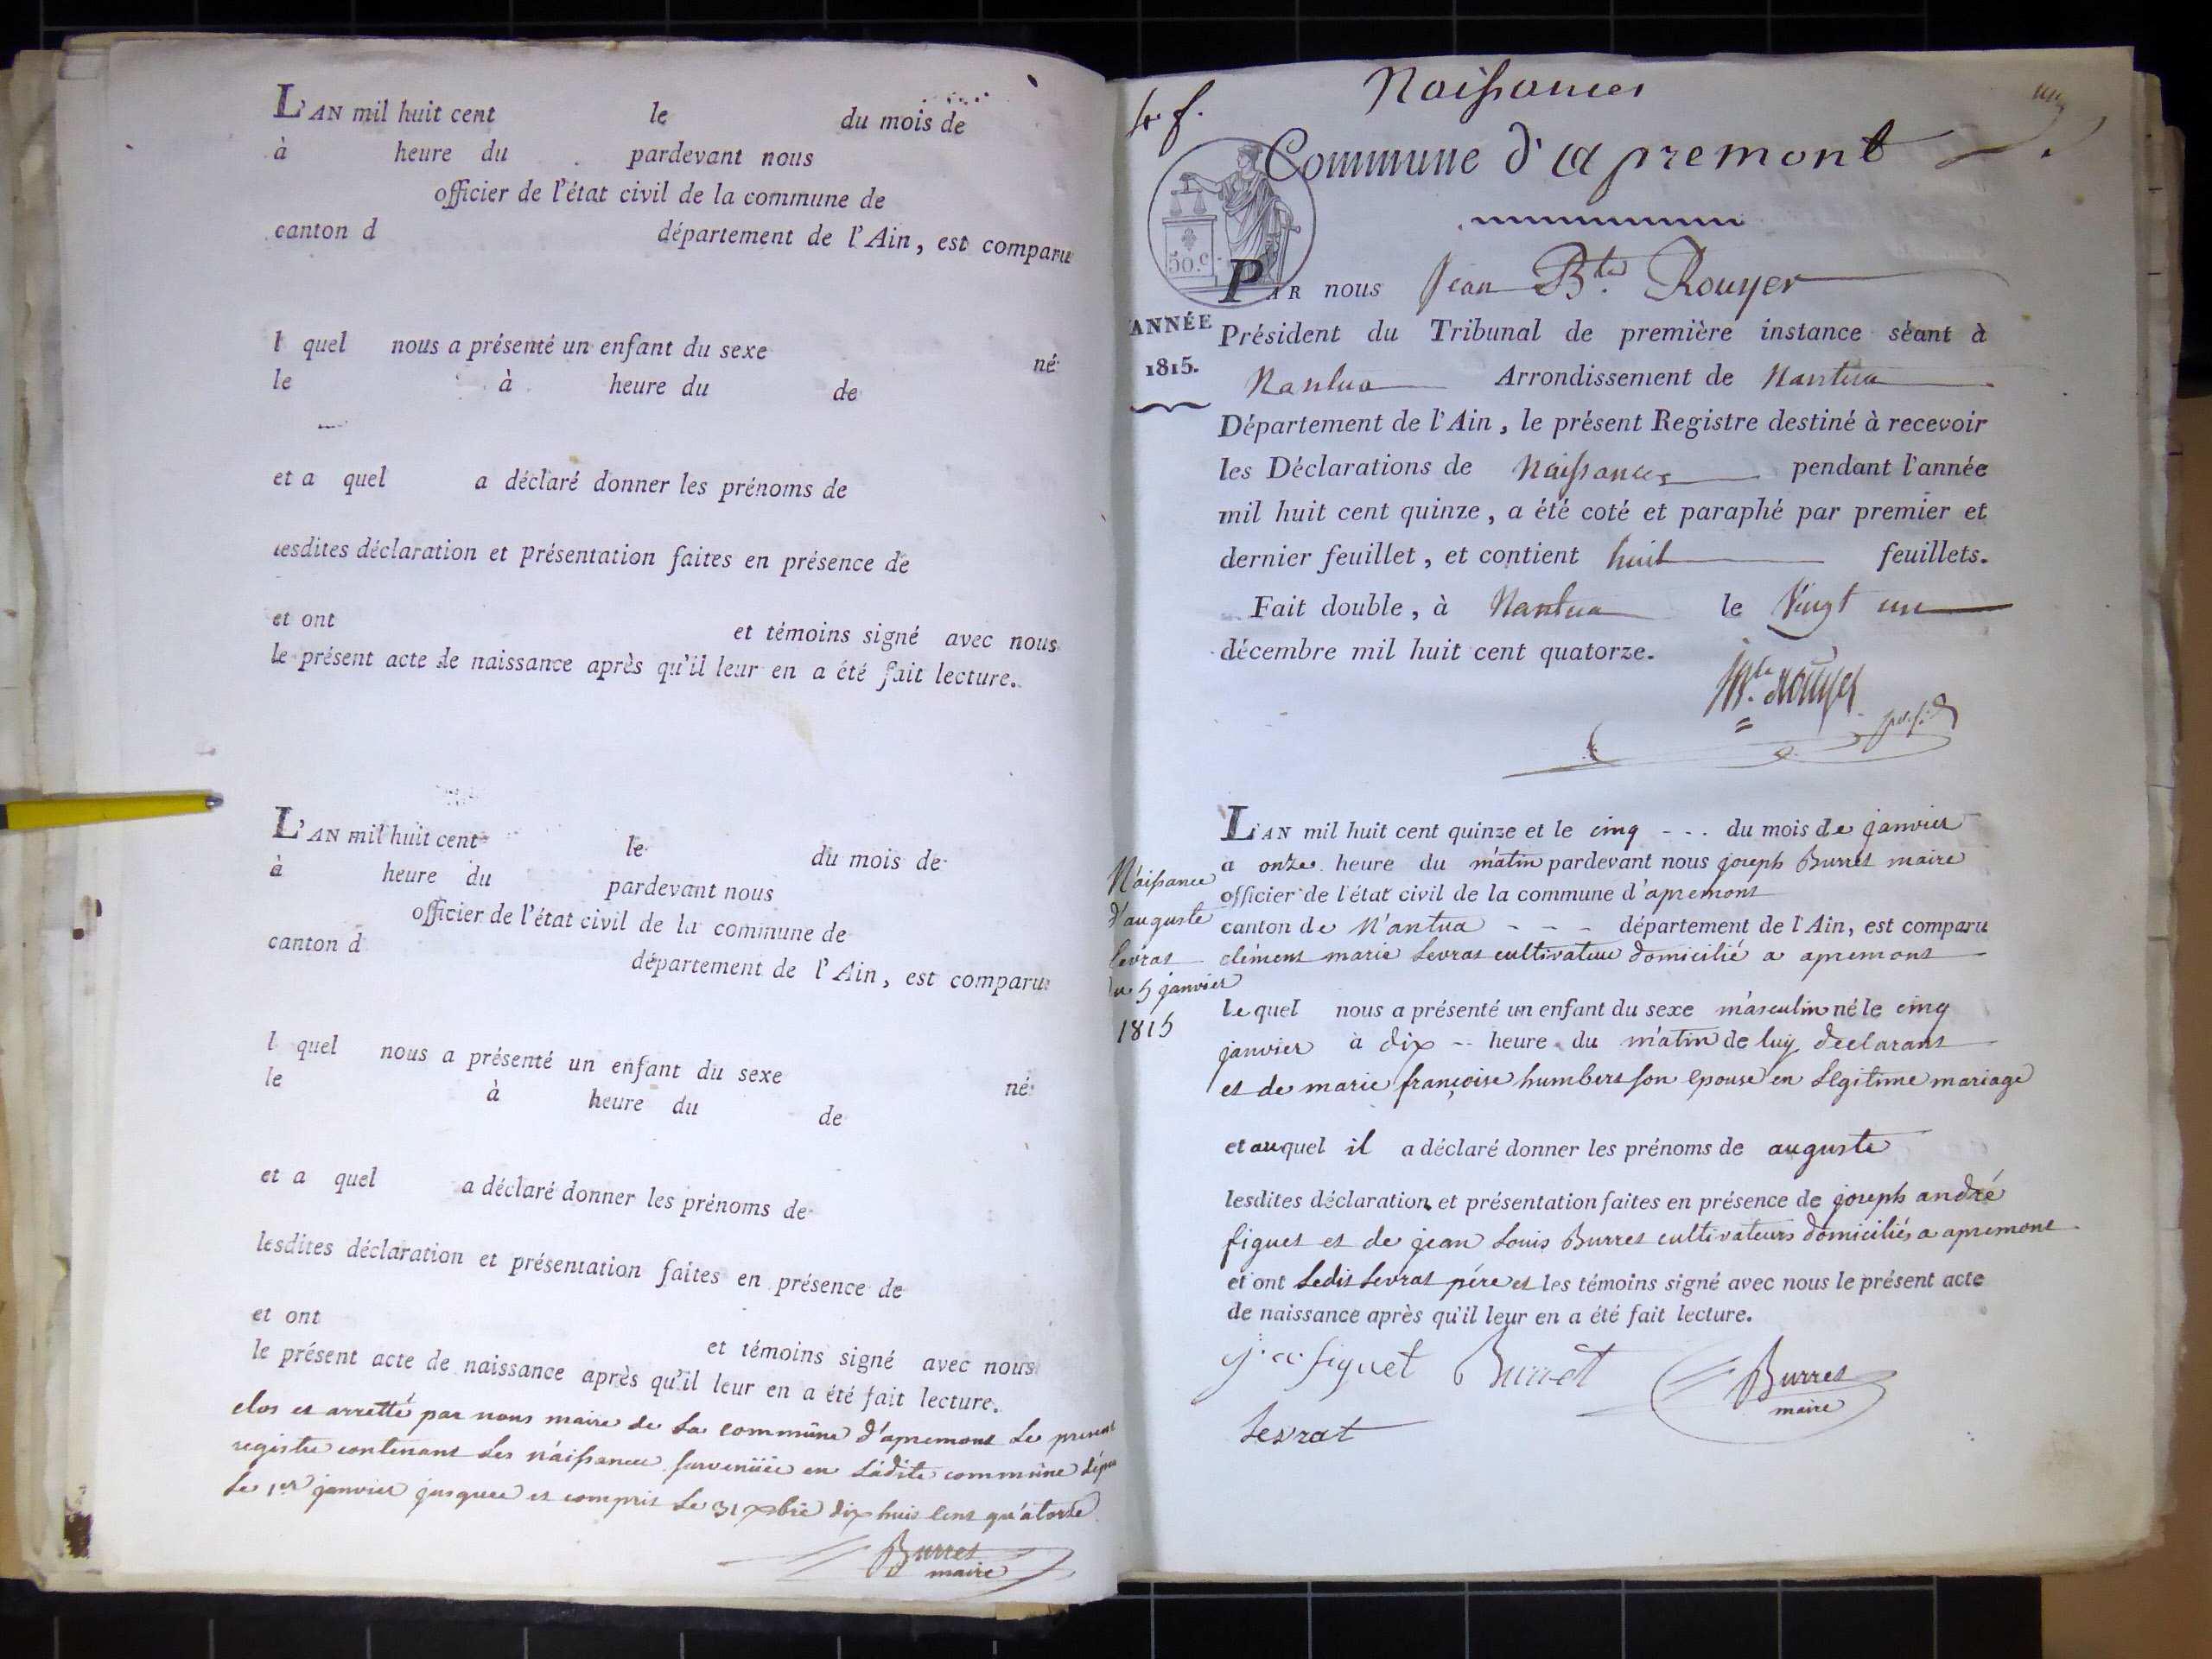 L'AN mil huit cent le du mois de
à heure du pardevant nous
officier de l'état civil de la commune de
canton d département de l'Ain, est comparu
l quel nous a présenté un enfant du sexe né
le à heure du de
et a quel a déclaré donner les prénoms de
lesdites déclaration et présentation faites en présence de
et ont et témoins signé avec nous
le présent acte de naissance après qu'il leur en a été fait lecture.
L'AN mil huit cent le du mois de
à heure du pardevant nous
officier de l'état civil de la commune de
canton d département de l'Ain, est comparu
l quel nous a présenté un enfant du sexe né
le à heure du de
et a quel a déclaré donner les prénoms de
lesdites déclaration et présentation faites en présence de
et ont et témoins signé avec nous
le présent acte de naissance après qu'il leur en a été fait lecture.
clos et arretté par nous maire de la commune d'apremont le present
registre contenant les náissances survenüée en ladite commüne dépuis
le 1er janvier jusquee et compris le 31 xbre dix huit cent quátorze
Burret
maire
Naissances
Commune d'apremont
50.c
PAR nous Jean Bte. Rouyer
ANNÉE
1815.
Président du Tribunal de première instance séant à
Nantua Arrondissement de Nantua
Département de l'Ain, le présent Registre destiné à recevoir
les Déclarations de Naissances pendant l'année
mil huit cent quinze, a été coté et paraphé par premier et
dernier feuillet, et contient huit feuillets.
Fait double, à Nantua le Vingt un
décembre mil huit cent quatorze.
JBte. Rouyer
présidt
Náissance
d'auguste
levrat
du 5 janvier
1815
L'AN mil huit cent quinze et le cinq - - . du mois de janvier
a onze heure du mátin pardevant nous joseph Burret maire
officier de l'état civil de la commune d'apremont
canton de Nántua - - - département de l'Ain, est comparu
clément marie Levrat cultivateur domicilié a apremont
le quel nous a présenté un enfant du sexe másculin né le cinq
janvier à dix -- heure du mátin de luy declarant
et de marie françoise humbert son epouse en Légitime mariage
et auquel il a déclaré donner les prénoms de auguste
lesdites déclaration et présentation faites en présence de joseph andré
figuet et de jean Louis Burret cultivateurs domiciliés a apremont
et ont Ledit Levrat pére et les témoins signé avec nous le présent acte
de naissance après qu'il leur en a été fait lecture.
j. a. figuet Burret Burret
maire
Levrat